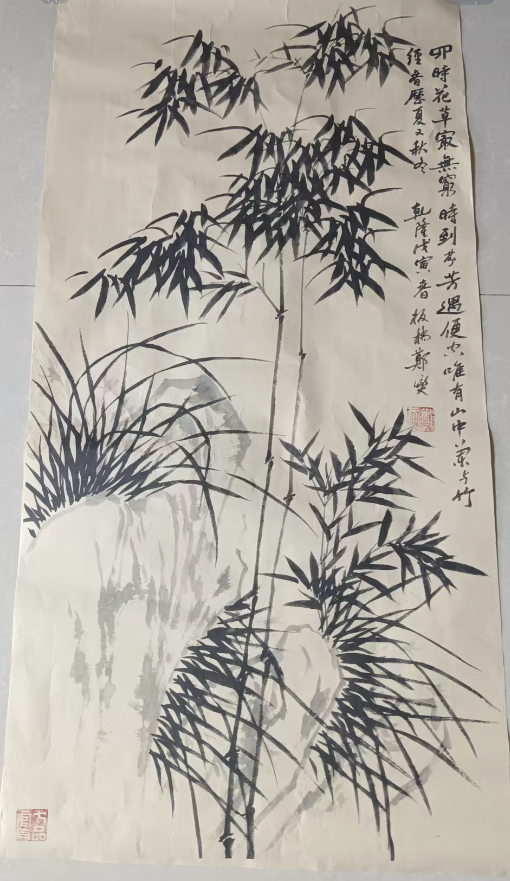 四時花草最無窮時到芬芳過便空唯有山中蘭与竹
經春歷夏又秋冬　乾隆戊寅春　板橋鄭燮